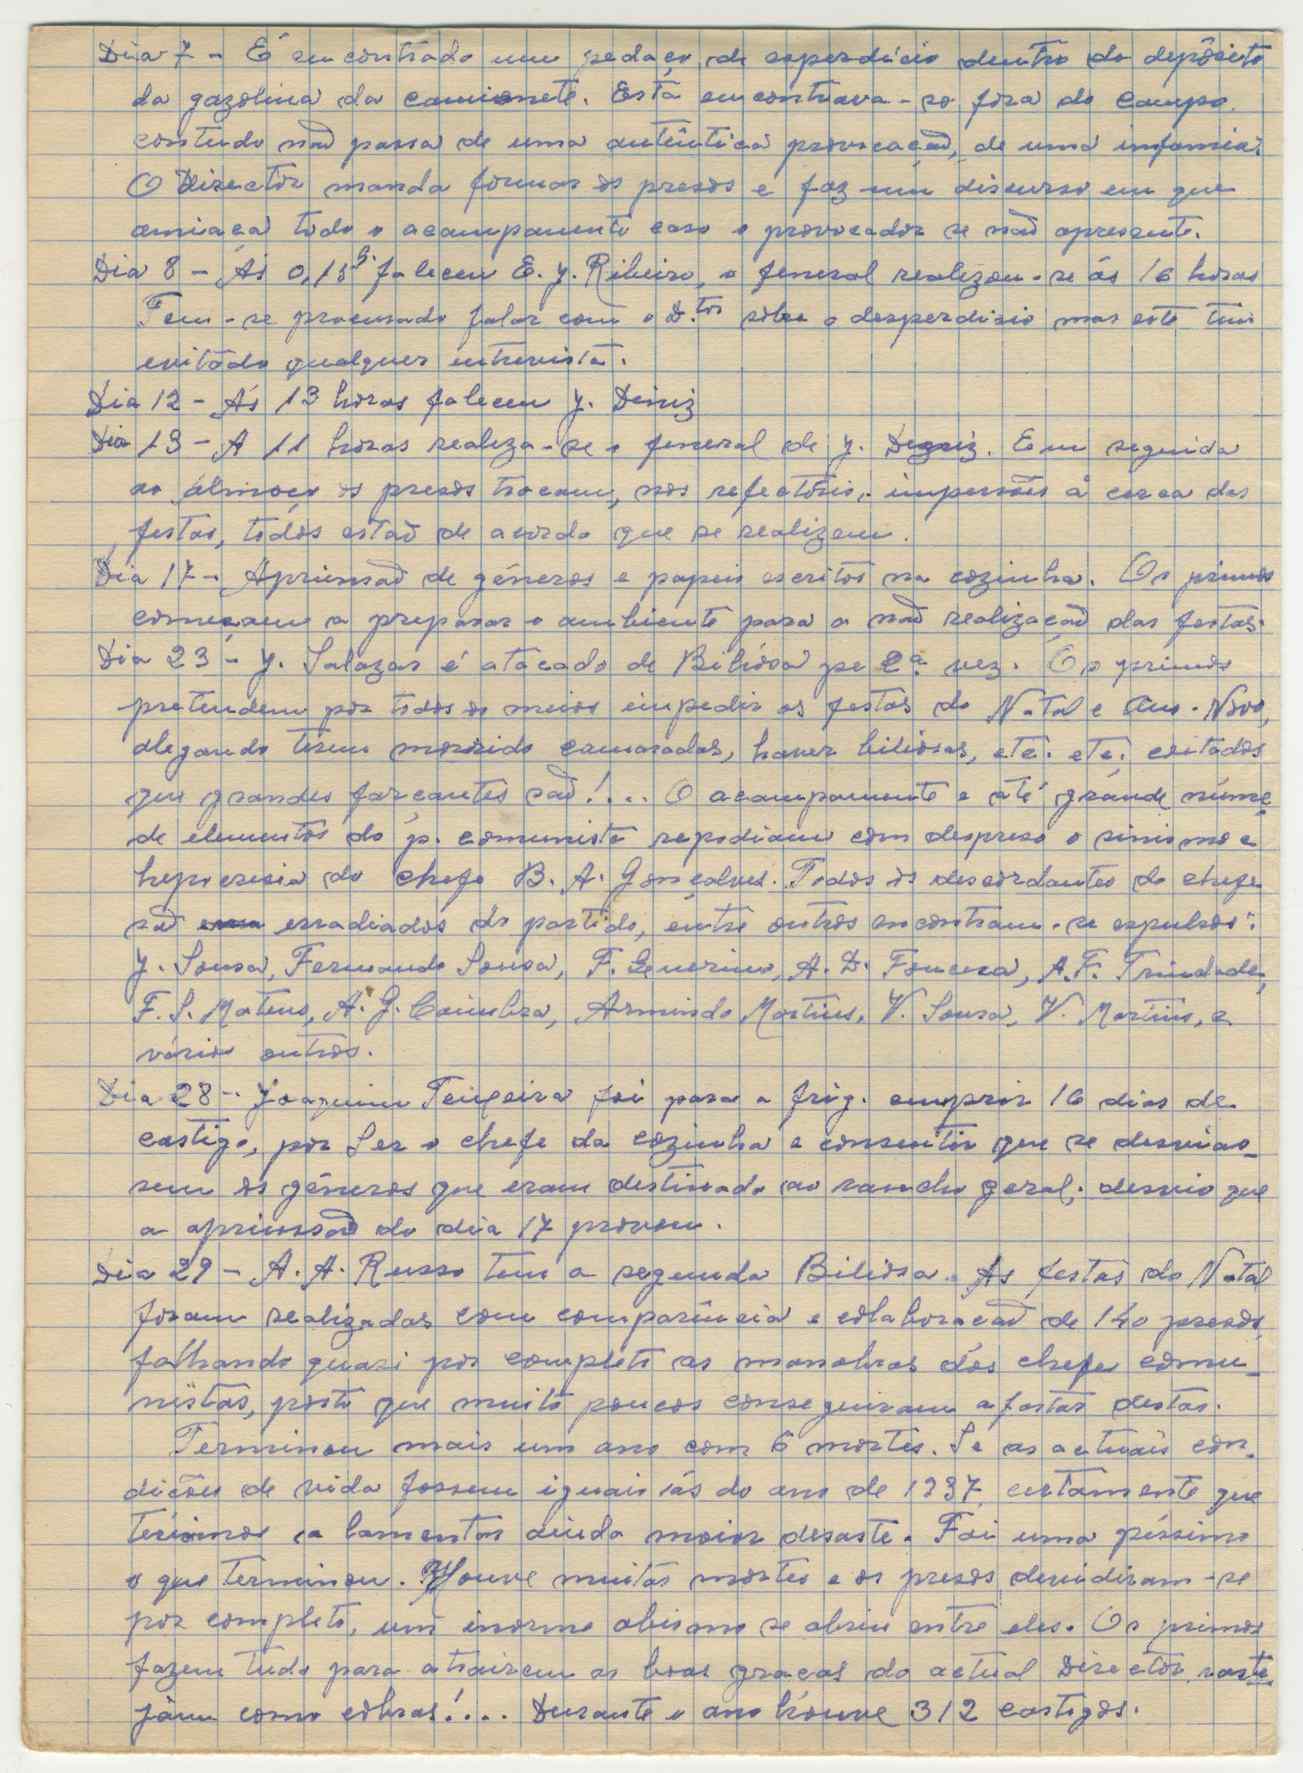 Dia 7 - É encontrado um pedaço de esperdicio dentro do depósito
da gazolina da camionete. Esta encontrava-se fóra do campo
contudo não passa de uma autêntica provocação, de uma infamia.
O Director manda formar os presos e faz um discurso em que
amiaça todo o acampamento caso o provocador se não apresente.
Dia 8 - Ás 0,15 h. faleceu E. J. Ribeiro, o feneral realizou-se ás 16 horas
Tem-se procurado falar com o D.tor sôbre o desperdicio mas este tem
evitado qualquer entrevista.
Dia 12 - Ás 13 horas faleceu J. Diniz
Dia 13 - A 11 horas realiza-se o feneral de J. Deniz. Em seguida
ao almoço os presos trocam, nos refectório, impersões á cerca das
festas, todos estão de acordo que se realizem.
Dia 17 - Apriensão de géneros e papeis escritos na cozinha. Os primos
começam a preparar o ambiente para a não realização das festas.
Dia 23 - J. Salazar é atacado de Biliósa pe 2ª vez. Os primos
pretendem por todos os meios impedir as festas do Natal e Ano-Novo,
alegando terem morrido camaradas, haver biliosas, etc. etc; coitados
que grandes farçantes são!... O acampamento e até grande núme
de elementos do p. comunista repodiam com despreso o sinismo e
hepocresia do chefe B. A. Gonçalves. Todos os descordantes do chefe
são erradiados do partido, entre outros encontram-se espulsos:
J. Sousa, Fernando Sousa, F. Quirino, A. D. Fonceca, A. F. Trindade,
F. S. Mateus, A. G. Coimbra, Armindo Martins, V. Sousa, V. Martins, e
vários outros.
Dia 28 - Joaquim Teixeira foi para a frig. cumprir 16 dias de
castigo, por ser o chefe da cozinha e consentir que se desvias-
sem os géneros que eram destinado ao rancho geral; desvio que
a apriensão do dia 17 provou.
Dia 29 - A. A. Russo tem a segunda Biliosa. As festas do Natal
foram realizadas com comparência e colaboração de 140 presos,
falhando quasi por completo as manobras dos chefes comu-
nistas, posto que muito poucos conseguiram afastar destas.
Terminou mais um ano com 6 mortes. Se as actuais con-
dições de vida fossem iguais ás do ano de 1937 certamente que
teriamos a lamentar ainda maior desaste. Foi uma péssimo
o que terminou. Houve muitas mortes e os presos devidiram-se
por completo, um inorme abismo se abriu entre eles. Os primos
fazem tudo para atrairem as boas graças do actual Director raste
jam como cobras!... Durante o ano houve 312 castigos.